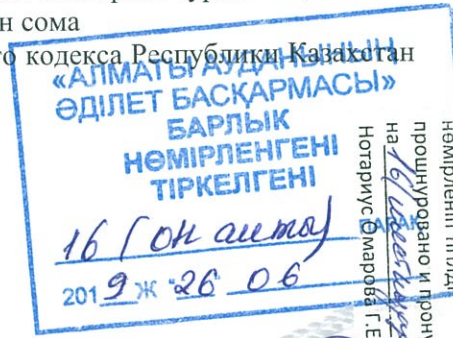 н сома
го кодекса Республики Казахстан
«АЛМАТЫ АУДАНЫНЫҢ
ӘДІЛЕТ БАСҚАРМАСЫ»
БАРЛЫК
НӨМІРЛЕНГЕНІ
ТІРКЕЛГЕНІ
16 (он алты) ПАРАҚ
2019 Ж "26 06
нөмірленіп тігілді
прошнуровано и прону
на 16 (шестнадц
Нотариус Омарова Г.Е